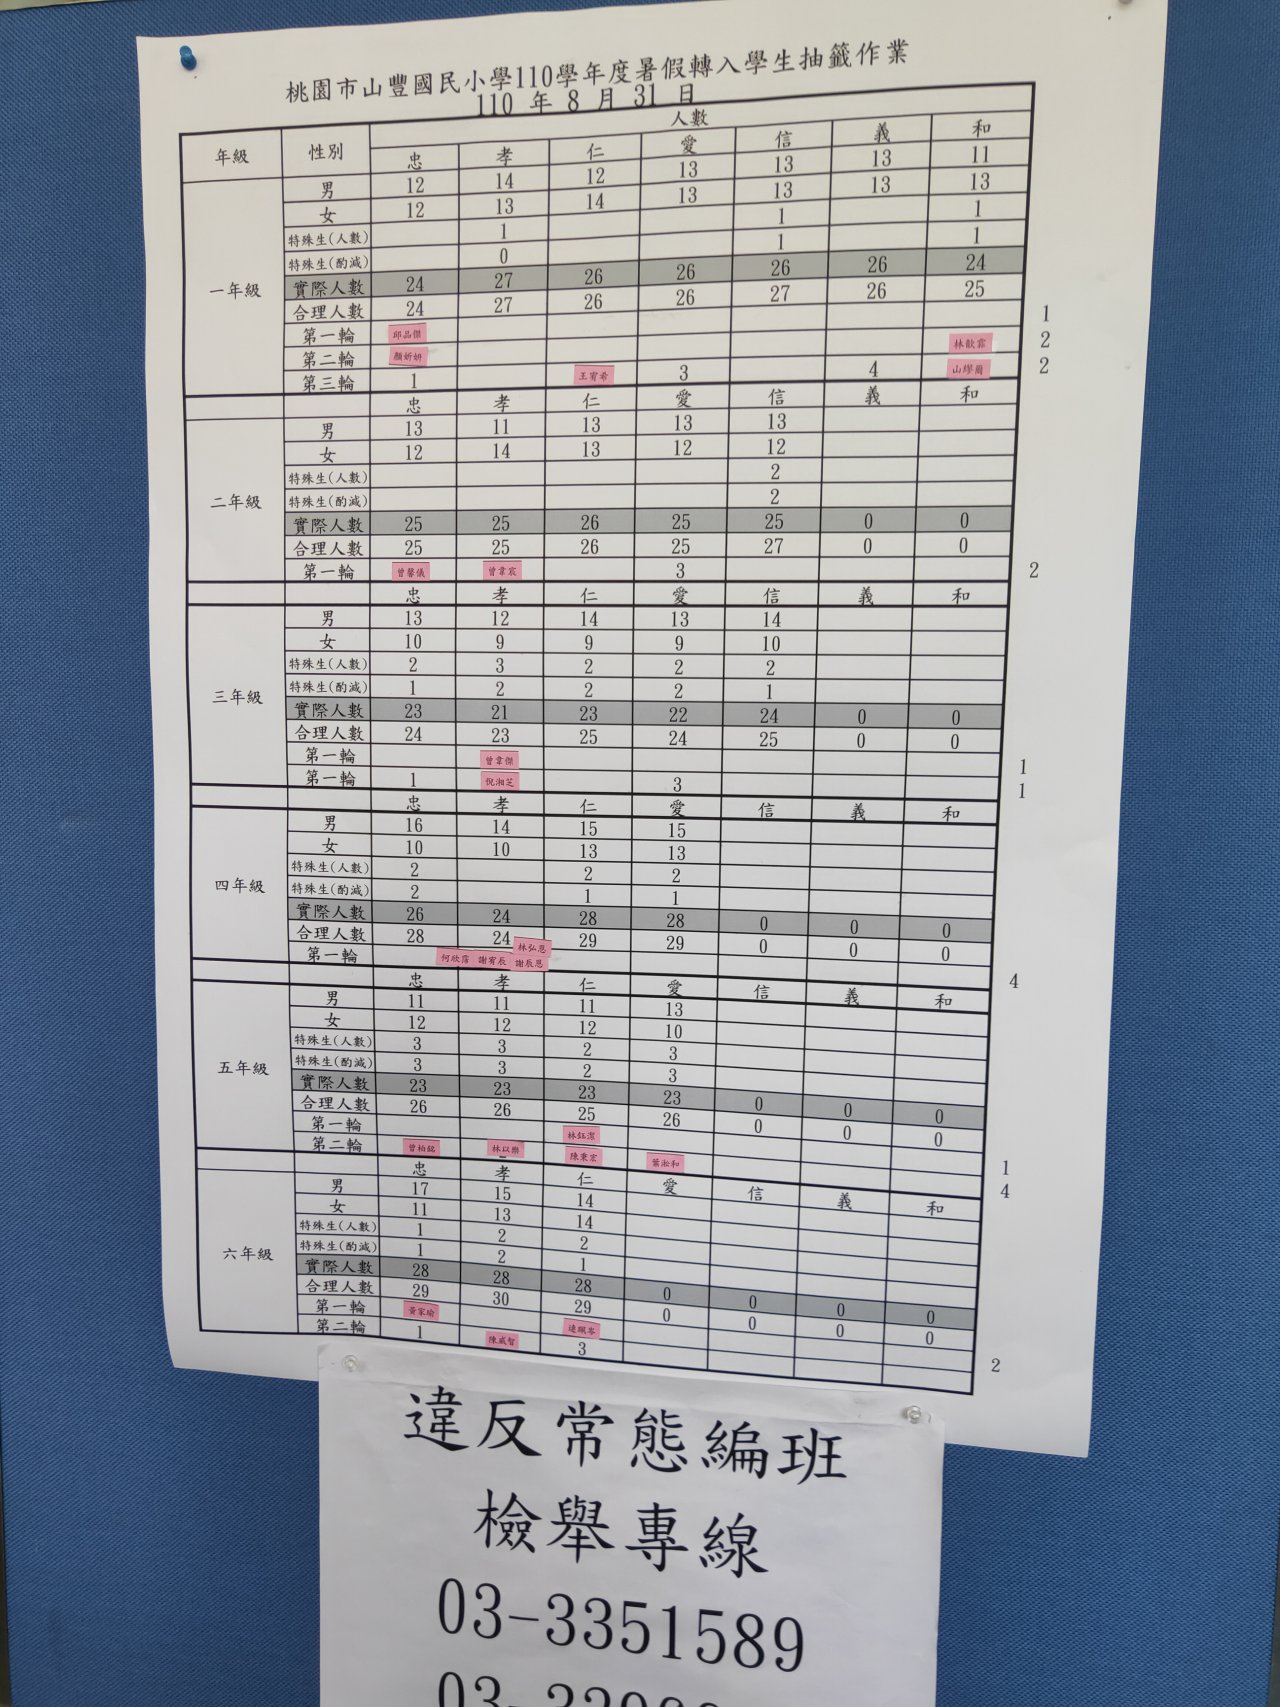 桃園市山豐國民小學110學年度暑假轉入學生抽籤作業
110 年 8 月 31 日
年級 性別 人數
忠 孝 仁 愛 信 義 和
一年級
男 12 14 12 13 13 13 11
女 12 13 14 13 13 13 13
特殊生(人數) 1 1 1
特殊生(酌減) 0 1 1
實際人數 24 27 26 26 26 26 24
合理人數 24 27 26 26 27 26 25
第一輪 邱品傑 1
第二輪 顏妡妍 林歆霏 2
第三輪 1 王宥希 3 4 山繆爾 2
忠 孝 仁 愛 信 義 和
二年級
男 13 11 13 13 13
女 12 14 13 12 12
特殊生(人數) 2
特殊生(酌減) 2
實際人數 25 25 26 25 25 0 0
合理人數 25 25 26 25 27 0 0
第一輪 曾馨儀 曾韋宸 3 2
忠 孝 仁 愛 信 義 和
三年級
男 13 12 14 13 14
女 10 9 9 9 10
特殊生(人數) 2 3 2 2 2
特殊生(酌減) 1 2 2 2 1
實際人數 23 21 23 22 24 0 0
合理人數 24 23 25 24 25 0 0
第一輪 曾韋傑 1
第一輪 1 倪湘芝 3 1
忠 孝 仁 愛 信 義 和
四年級
男 16 14 15 15
女 10 10 13 13
特殊生(人數) 2 2 2
特殊生(酌減) 2 1 1
實際人數 26 24 28 28 0 0 0
合理人數 28 24 29 29 0 0 0
林弘恩
第一輪 何欣霈 謝宥辰 謝辰恩 4
忠 孝 仁 愛 信 義 和
五年級
男 11 11 11 13
女 12 12 12 10
特殊生(人數) 3 3 2 3
特殊生(酌減) 3 3 2 3
實際人數 23 23 23 23 0 0 0
合理人數 26 26 25 26 0 0 0
第一輪 林鈺潔 1
第二輪 曾柏銘 林以樂 陳秉宏 葉淞和 4
忠 孝 仁 愛 信 義 和
六年級
男 17 15 14
女 11 13 14
特殊生(人數) 1 2 2
特殊生(酌減) 1 2 1
實際人數 28 28 28 0 0 0 0
合理人數 29 30 29 0 0 0 0
第一輪 黃家瑜 連珮岑
第二輪 1 陳威智 3 2
違反常態編班
檢舉專線
03-3351589